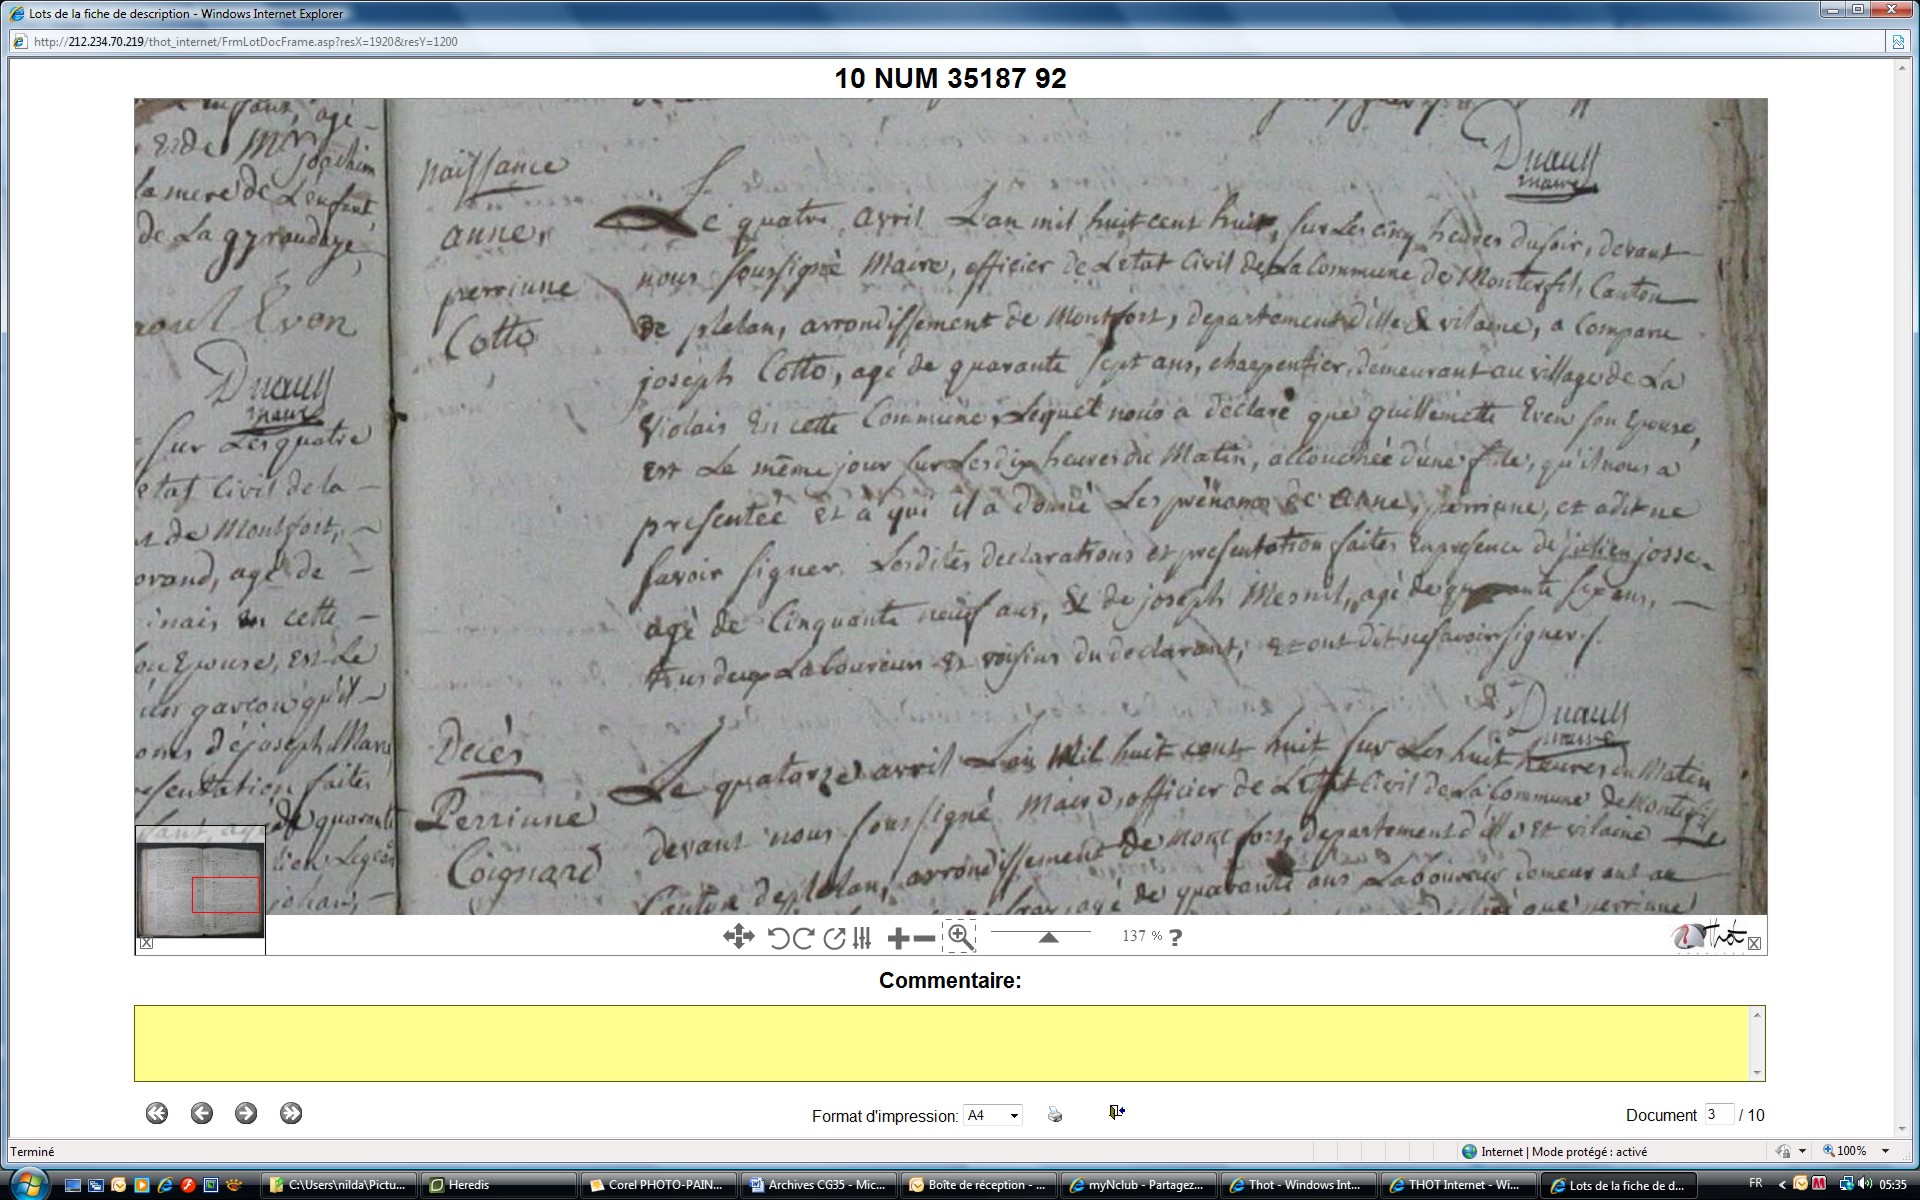 Lots de la fiche de description - Windows Internet Explorer
http://212.234.70.219/thot_internet/FrmLotDocFrame.asp?resX=1920&resY=1200
10 NUM 35187 92
la mere de L'enfant,
de La gyraudaye,
Even
Duault
maire
Sur Les quatre
etat Civil de la
de Montfort,
agé de
en cette
son Epouse, est Le
un garçon qu'il
joseph Marie
faites
quarante
Duault
maire
naissance
anne,
perrinne
Cotto
Le quatre avril L'an mil huit cent huit, sur Les cinq heures du soir, devant
nous soussigné Maire, officier de L'etat Civil de La Commune de Monterfil, Canton
de plelan, arrondissement de Montfort, departement d'ille & vilaine, a Comparu
joseph Cotto, agé de quarante sept ans, charpentier, demeurant au village de La
Violais En cette Commune, Lequel nous a declaré que guillemette Even son Epouse,
est Le même jour sur Les dix heures du Matin, accouchée d'une fille, qu'il nous a
presentée et à qui il a donné Les prénoms de anne, perrinne, et a dit ne
savoir signer. Lesdites declarations et presentation faites En presence de julien josse
agé de Cinquante neuf ans, & de joseph Mesnil, agé de quarante six ans,
tous deux Laboureurs et voisins du declarant, et ont dit ne savoir signer.
Duault
maire
Decès
Perrinne
Coignard
Le quatorze avril L'an Mil huit cent huit sur Les huit heures du Matin
devant nous soussigné Maire, officier de L'Etat Civil de La Commune de Monterfil
Canton de plelan, arrondissement de montfort, departement d'ille et vilaine
agé de quarante ans Laboureur demeurant au
que perrinne
137 % ?
Thot
Commentaire:
Format d'impression: A4
Document 3 / 10
Terminé
Internet | Mode protégé : activé
100%
C:\Users\nilda\Pictu...
Heredis
Corel PHOTO-PAIN...
Archives CG35 - Mic...
Boîte de réception - ...
myNclub - Partagez...
Thot - Windows Int...
THOT Internet - Wi...
Lots de la fiche de d...
FR
05:35